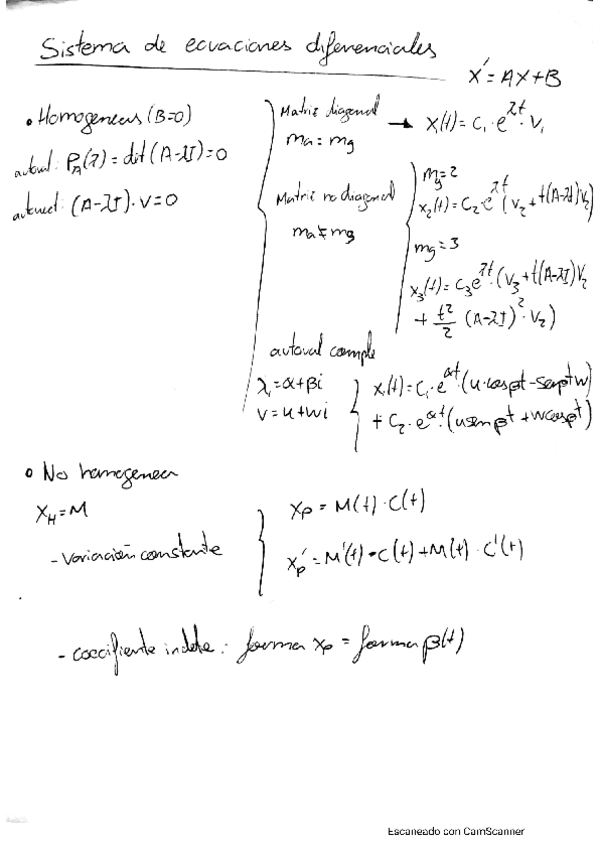 Sistema de ecuaciones diferenciales
X' = AX+B
• Homogeneas (B=0)
autoval: P_A(λ) = det(A-λI)=0
autovect: (A-λI)·v=0
Matriz diagonal
ma = mg
→ X₁(t) = C₁·e^λt·V₁
Matriz no diagonal
ma ≠ mg
mg=2
x₂(t) = C₂·e^λt (v₂ + t(A-λI)v₂
mg=3
x₃(t) = C₃e^λt·(v₃ + t(A-λI)v₂
+ t²/2 (A-λI)²·v₂)
autoval comple
λ₁=α+βi
v = u+wi
x₁(t) = C₁·e^αt·(u·cosβt-senβtw)
+ C₂·e^αt·(usenβt+wcosβt)
• No homogenea
X_H = M
- Variación constante
Xp = M(t)·C(t)
Xp' = M'(t)·C(t)+M(t)·C'(t)
- coeficiente indete: forma xp = forma β(t)
Escaneado con CamScanner